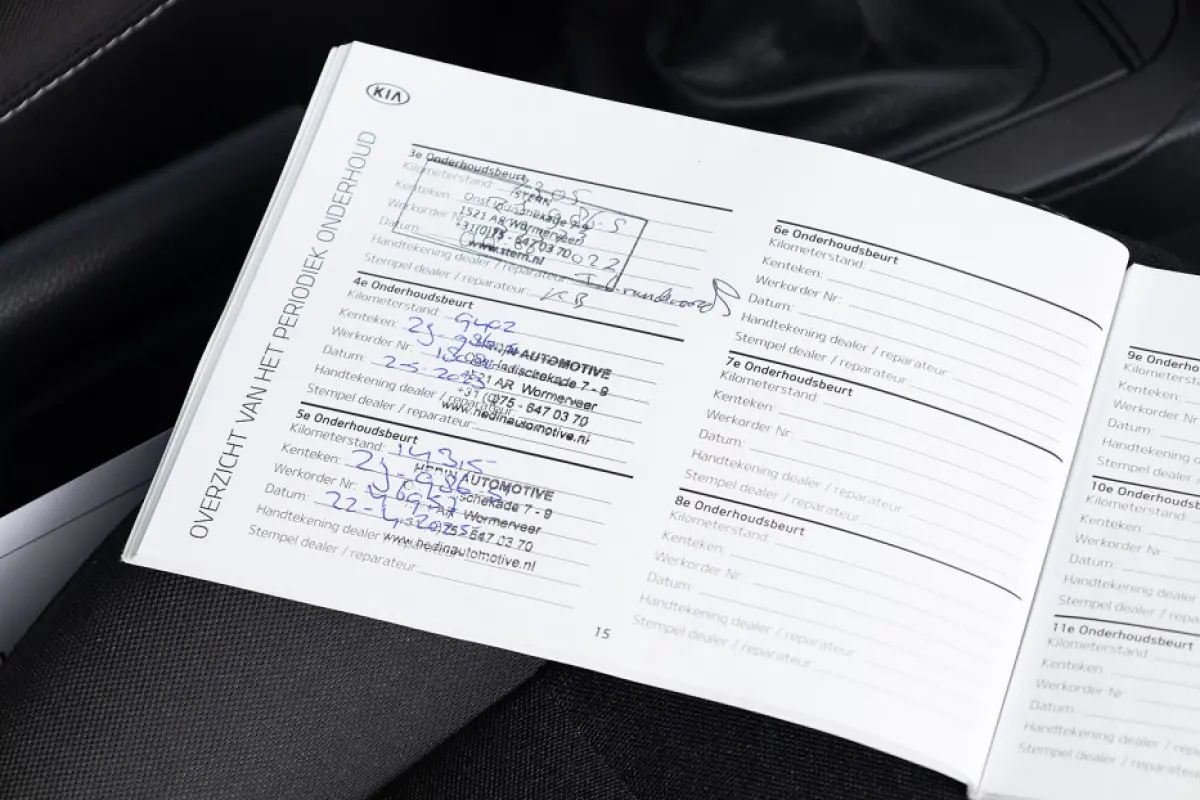 KIA
OVERZICHT VAN HET PERIODIEK ONDERHOUD
3e Onderhoudsbeurt
Kilometerstand:
Kenteken:
Werkorder Nr.
Datum:
Handtekening dealer / reparateur:
Stempel dealer / reparateur:
STERN
Oostindischekade 7-9
1521 AR Wormerveer
+31(0)75 - 647 03 70
www.stern.nl
KB
4e Onderhoudsbeurt
Kilometerstand:
Kenteken:
Werkorder Nr.:
Datum: 2-5-2023
Handtekening dealer / reparateur:
Stempel dealer / reparateur:
AUTOMOTIVE
indischekade 7 - 9
1521 AR Wormerveer
+31 (0)75 - 647 03 70
www.hedinautomotive.nl
5e Onderhoudsbeurt
Kilometerstand: 14315
Kenteken:
Werkorder Nr.:
Datum: 22-4-2025
Handtekening dealer / reparateur:
Stempel dealer / reparateur:
HEDIN AUTOMOTIVE
schekade 7 - 9
AR Wormerveer
75 - 647 03 70
www.hedinautomotive.nl
15
6e Onderhoudsbeurt
Kilometerstand:
Kenteken:
Werkorder Nr:
Datum:
Handtekening dealer / reparateur:
Stempel dealer / reparateur:
7e Onderhoudsbeurt
Kilometerstand:
Kenteken:
Werkorder Nr:
Datum:
Handtekening dealer / reparateur
Stempel dealer / reparateur:
8e Onderhoudsbeurt
Kilometerstand:
Kenteken:
Werkorder Nr:
Datum:
Handtekening dealer / reparateur
Stempel dealer / reparateur:
9e Onderhoudsbeurt
Kilometersta
Kenteken:
Werkorder Nr
Datum:
Handtekening
Stempel dealer
10e Onderhoudsbeu
Kilometerstand
Kenteken:
Werkorder Nr:
Datum:
Handtekening dealer
Stempel dealer / repa
11e Onderhoudsbeurt
Kilometerstand
Kenteken:
Werkorder Nr:
Datum:
Handtekening dealer /
Stempel dealer / reparat